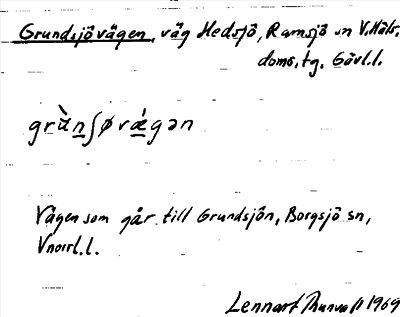 Grundsjövägen, väg Hedsjö, Ramsjö sn V. Häls.
doms. tg. Gävl.l.
grùn̲ʃøvǽ̲gən
Vägen som går till Grundsjön, Borgsjö sn,
Vnorrl.l.
Lennart Thunvall 1969